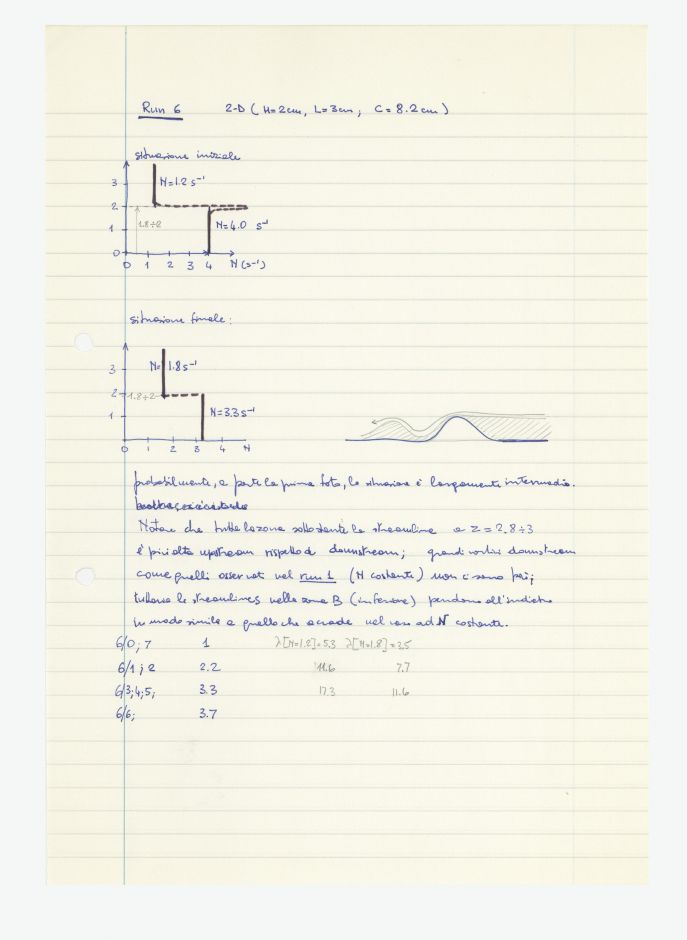 Run 6 2-D (H=2cm, L=3cm; C=8.2cm)
situazione iniziale
3
N=1.2 s⁻¹
2
1.8÷2
N=4.0 s⁻¹
1
0
0 1 2 3 4 N (s⁻¹)
situazione finale:
3
N=1.8 s⁻¹
2
1.8÷2
N=3.3 s⁻¹
1
0 1 2 3 N
probabilmente, a parte la prima foto, la situazione è largamente intermedia.
Notare che tutta la zona sottostante la streamline a z = 2.8÷3
è più alta upstream rispetto a downstream; grandi vortici downstream
come quelli osservati nel run 1 (N costante) non ci sono più;
tuttavia le streamlines nella zona B (inferiore) pendono all'indietro
in modo simile a quello che accade nel caso ad N costante.
6/0; 7 1 λ[N=1.2]=5.3 λ[N=1.8]=3.5
6/1; 2 2.2 11.6 7.7
6/3;4;5; 3.3 17.3 11.6
6/6; 3.7